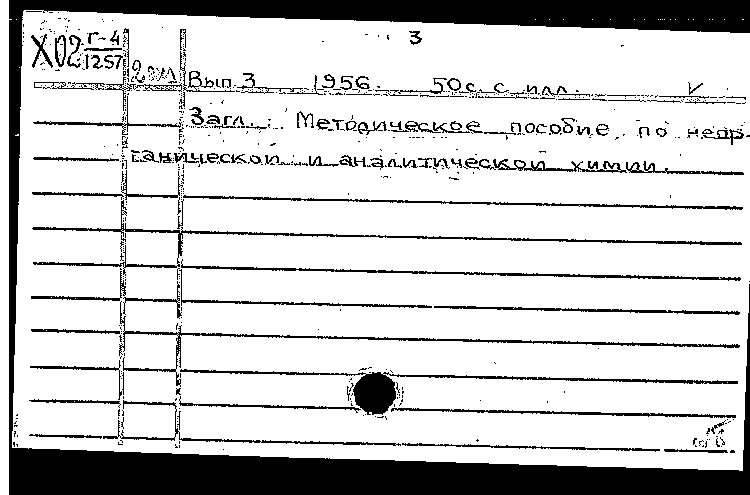 3
Х02 Г-4
1257
2 экз Вып. 3 1956. 50 с. с илл. V
Загл.: Методическое пособие по неор-
ганической и аналитической химии.